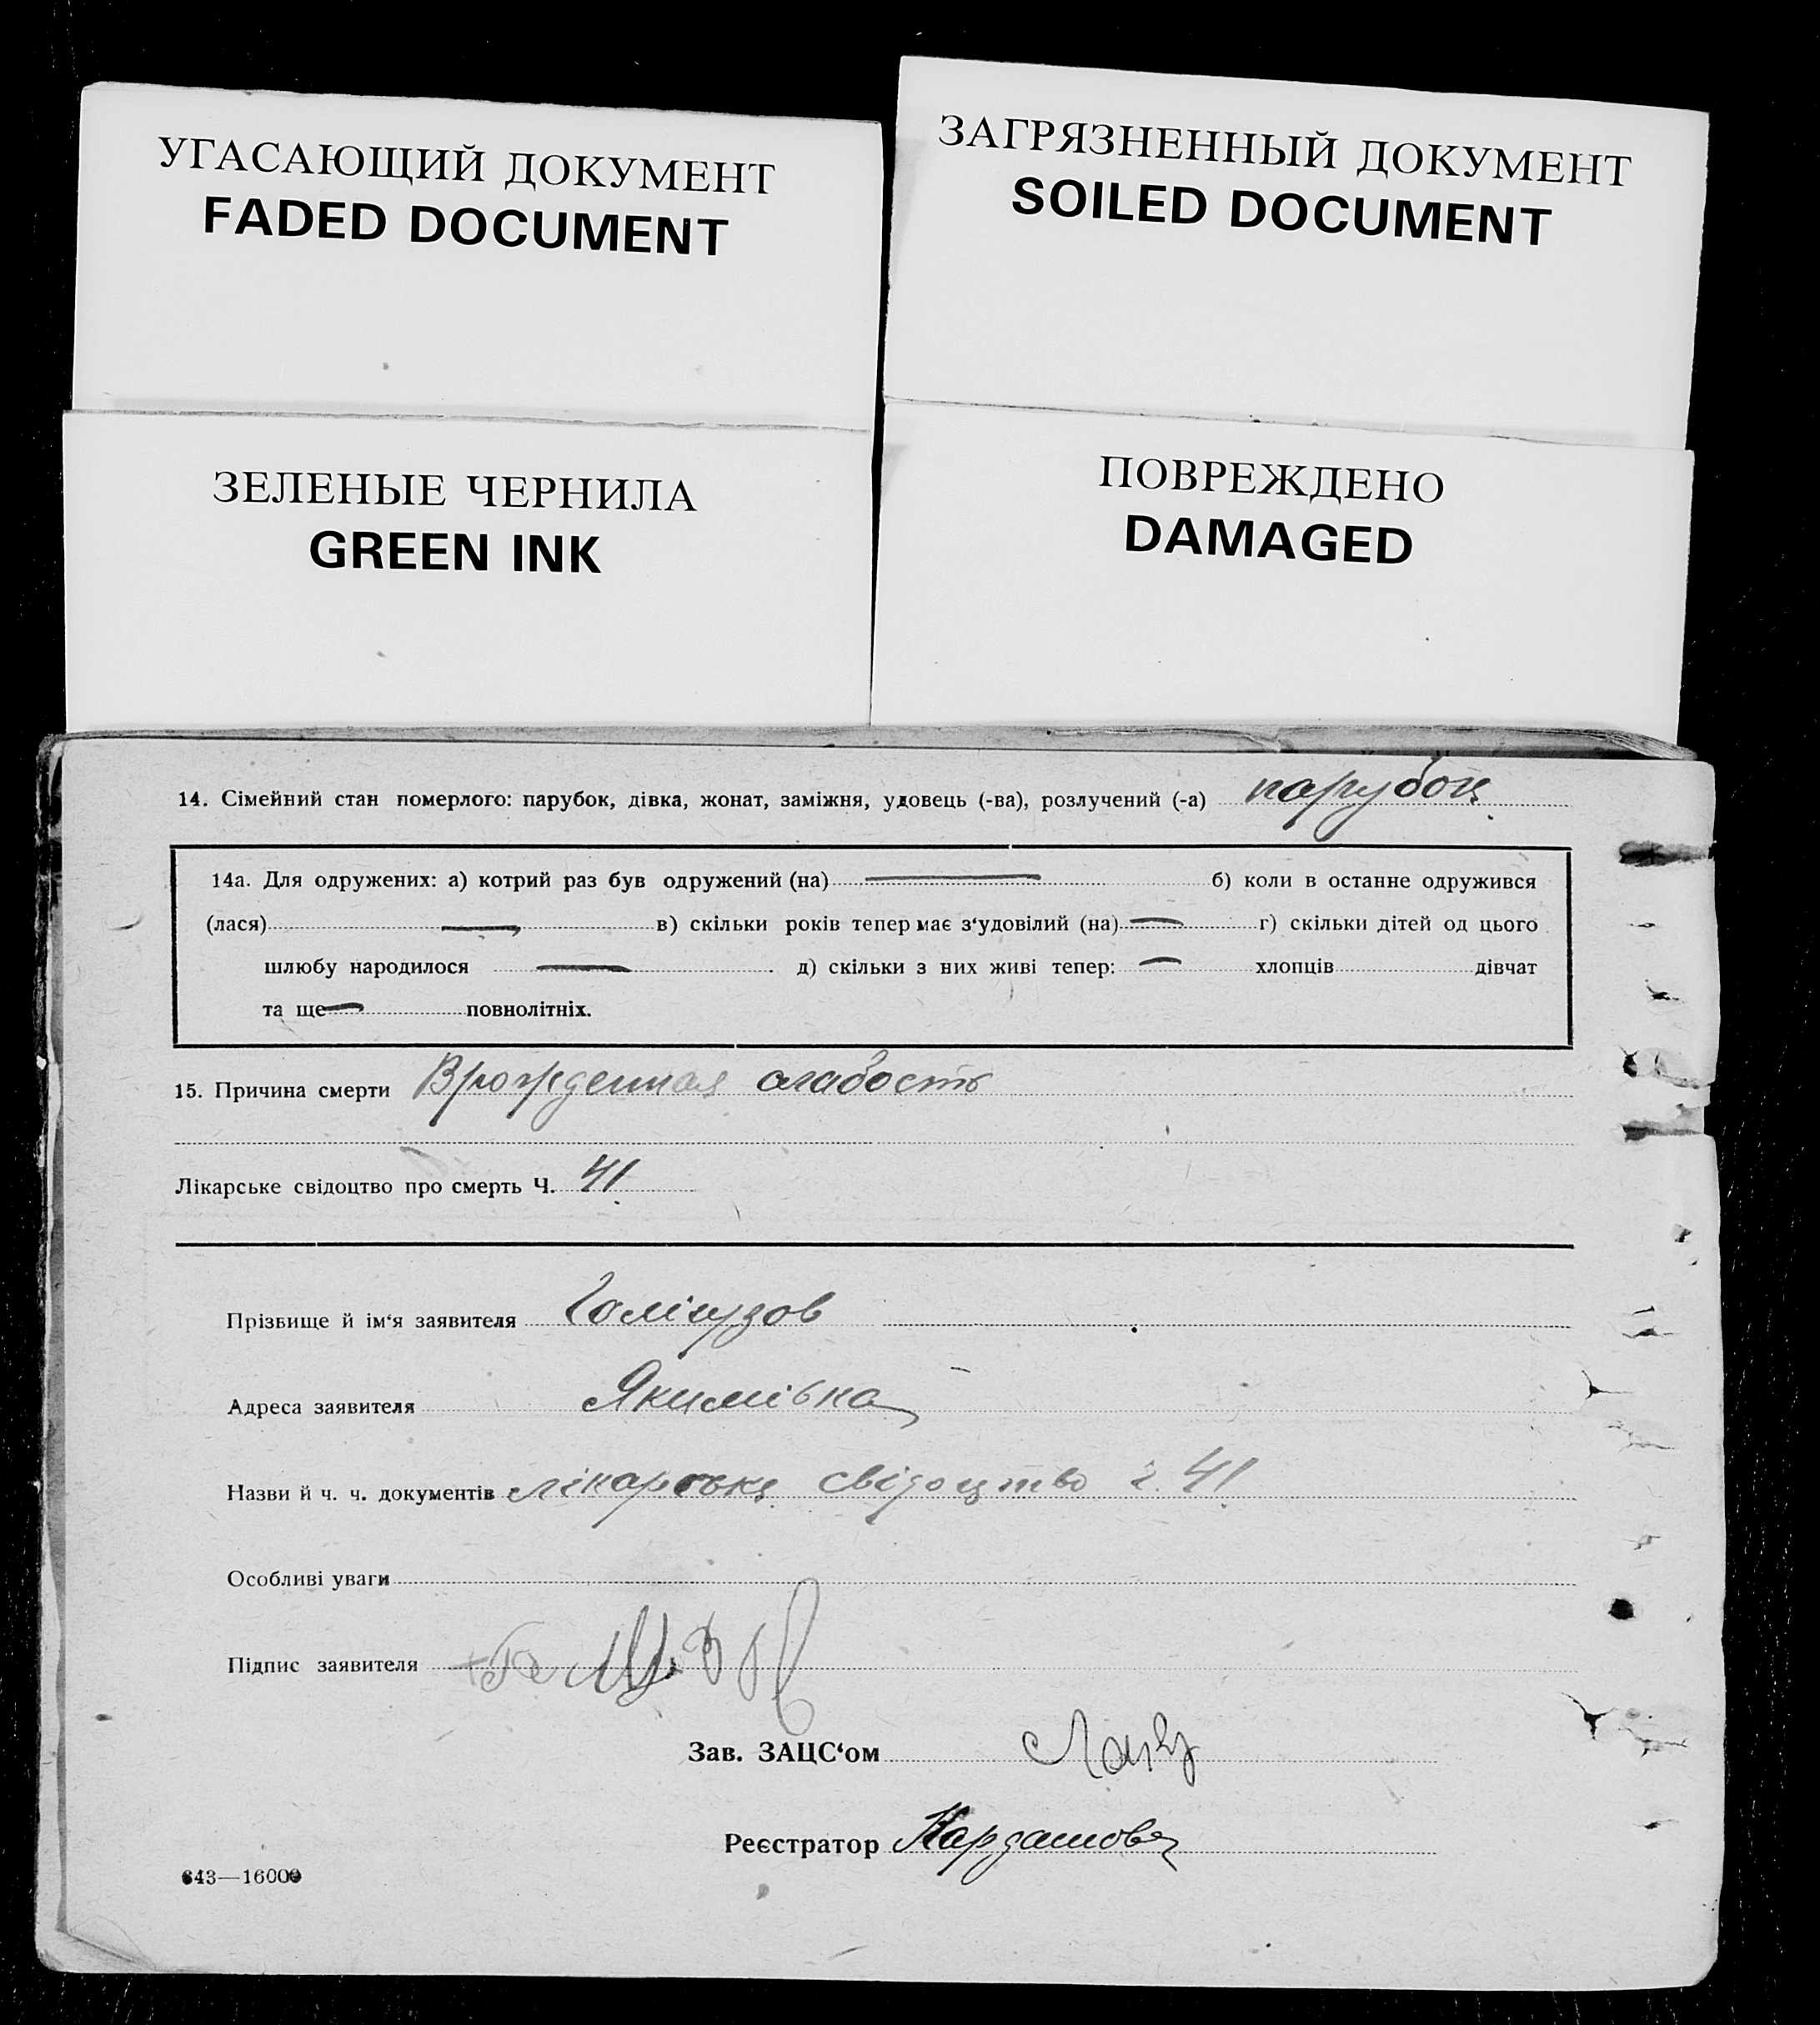 УГАСАЮЩИЙ ДОКУМЕНТ
FADED DOCUMENT
ЗАГРЯЗНЕННЫЙ ДОКУМЕНТ
SOILED DOCUMENT
ЗЕЛЕНЫЕ ЧЕРНИЛА
GREEN INK
ПОВРЕЖДЕНО
DAMAGED
14. Сімейний стан померлого: парубок, дівка, жонат, заміжня, удовець (-ва), розлучений (-а) парубок
14а. Для одружених: а) котрий раз був одружений (на) — б) коли в останне одружився
(лася) — в) скільки років тепер має з‘удовілий (на) — г) скільки дітей од цього
шлюбу народилося — . д) скільки з них живі тепер: — хлопців дівчат
та ще — повнолітніх.
15. Причина смерти Врожденная слабость
Лікарське свідоцтво про смерть Ч. 41
Прізвище й ім‘я заявителя Голігузов
Адреса заявителя Якимівка
Назви й ч. ч. документів лікарське свідоцтво ч. 41
Особливі уваги
Підпис заявителя
Зав. ЗАЦС‘ом
Реєстратор Кардашова
643—16000